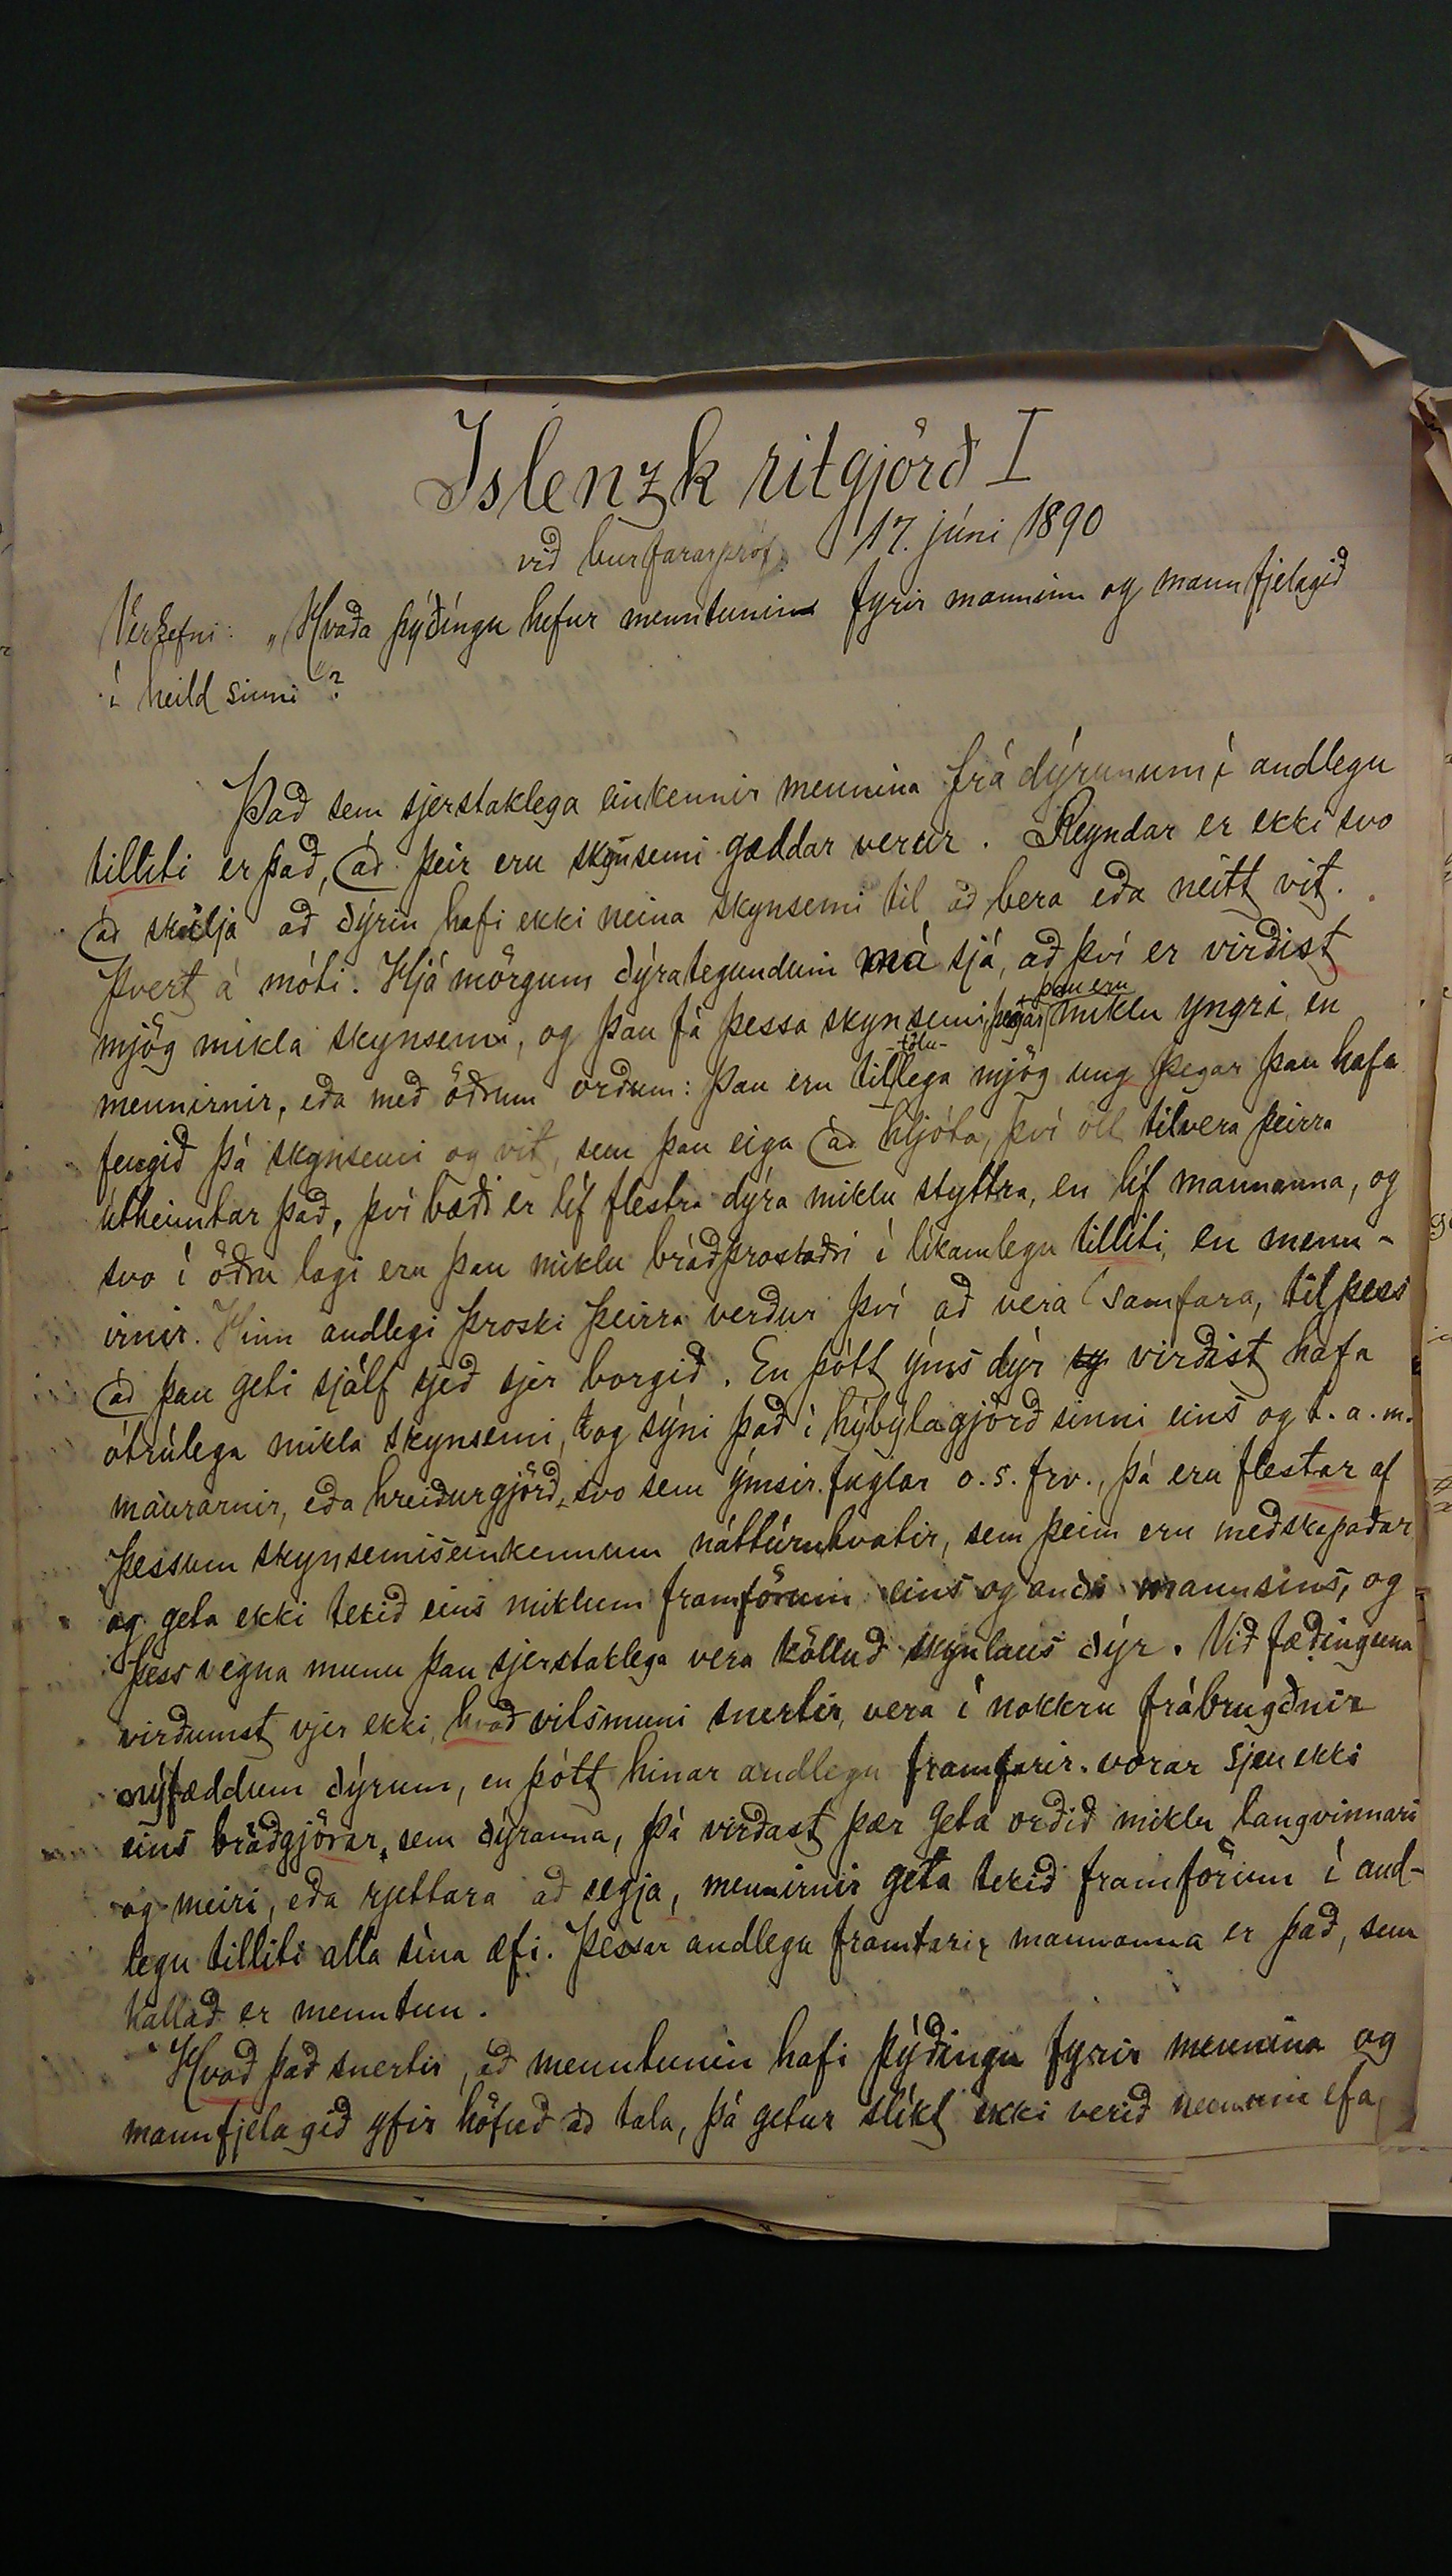 Islenzk ritgjörð I
við burfararpróf 17. júni 1890
Verkefni: „Hvaða þýðíngu hefur menntunin fyrir manninn og mannfjelagið
í heild sinni"?
Það sem sjerstaklega einkennir mennina frá dýrunum í andlegu
tilliti er það, að þeir eru skynsemi gæddar verur. Reyndar er ekki svo
að skilja að dýrin hafi ekki neina skynsemi til að bera eða neitt vit.
Þvert á móti. Hjá mörgum dýrategundum má sjá, að því er virðist
mjög mikla skynsemi, og þau fá þessa skynsemi, þegar þau eru miklu yngri en
mennirnir, eða með öðrum orðum: þau eru tiltölulega mjög ung þegar þau hafa
fengið þá skynsemi og vit, sem þau eiga að hljóta, því öll tilvera þeirra
útheimtar það, því bæði er líf flestra dýra miklu styttra, en líf mannanna, og
svo í öðru lagi eru þau miklu bráðþroskaðri í líkamlegu tilliti, en menn-
irnir. Hinn andlegi þroski þeirra verður því að vera samfara, til þess
að þau geti sjálf sjeð sjer borgið. En þótt ýms dýr virðist hafa
ótrúlega mikla skynsemi, og sýni það í hýbýlagjörð sinni eins og t. a. m.
maurarnir, eða hreiðurgjörð, svo sem ýmsir fuglar o. s. frv., þá eru flestar af
þessum skynsemiseinkennum náttúruhvatir, sem þeim eru meðskapaðar
og geta ekki tekið eins miklum framförum eins og andi mannsins, og
þess vegna munu þau sjerstaklega vera kölluð skynlaus dýr. Við fæðinguna
virðumst vjer ekki, hvað vitsmuni snertir, vera í nokkru frábrugðnir
nýfæddum dýrum, en þótt hinar andlegu framfarir vorar sjeu ekki
eins bráðgjörar, sem dýranna, þá virðast þær geta orðið miklu langvinnari
og meiri, eða rjettara að segja, mennirnir geta tekið framförum í and-
legu tilliti alla sína æfi. Þessar andlegu framfarir mannanna er það, sem
kallað er menntun.
Hvað það snertir, að menntunin hafi þýðingu fyrir mennina og
mannfjelagið yfir höfuð að tala, þá getur slíkt ekki verið neinum efa